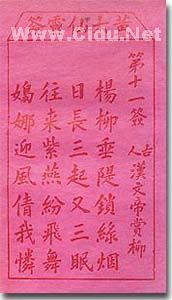 www.Cidu.Net
黃大仙靈簽
第十一簽
古人 漢文帝賞柳
楊柳垂隄鎖絲烟
日長三起又三眠
往來紫燕紛飛舞
嫋娜迎風倩我憐